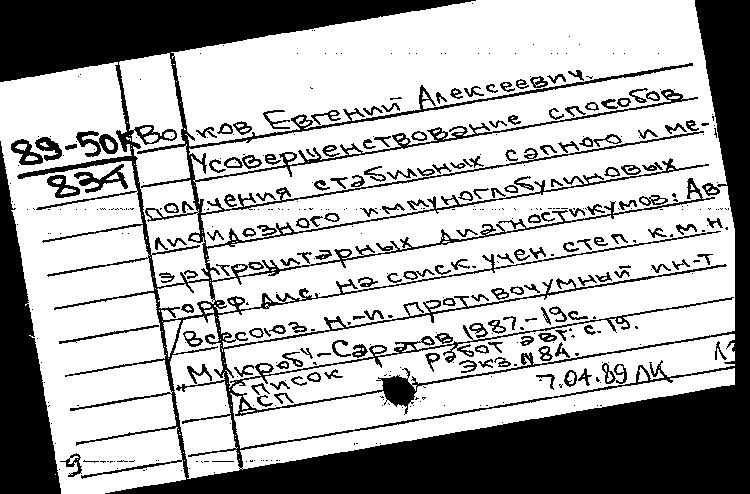 89-50К
834
Волков, Евгений Алексеевич.
Усовершенствование способов
получения стабильных сапного и ме-
лиоидозного иммуноглобулиновых
эритроцитарных диагностикумов: Ав-
тореф. дис. на соиск. учен. степ. к.м.н.
Всесоюз. н.-и. противочумный ин-т
„Микроб".-Саратов, 1987.-19с.
Список работ авт: с. 19.
ДСП экз. №84.
7.04.89 ЛК
9